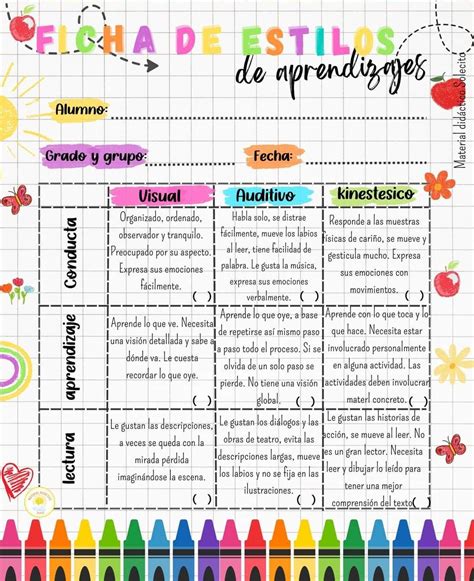 FICHA DE ESTILOS
de aprendizajes
Material didáctico Solecito
Alumno:
Grado y grupo:
Fecha:
Visual
Auditivo
kinestesico
Conducta
Organizado, ordenado,
observador y tranquilo.
Preocupado por su aspecto.
Expresa sus emociones
fácilmente.
( )
Habla solo, se distrae
fácilmente, mueve los labios
al leer, tiene facilidad de
palabra. Le gusta la música,
expresa sus emociones
verbalmente. ( )
Responde a las muestras
físicas de cariño, se mueve y
gesticula mucho. Expresa
sus emociones con
movimientos. ( )
aprendizaje
Aprende lo que ve. Necesita
una visión detallada y sabe a
dónde va. Le cuesta
recordar lo que oye.
( )
Aprende lo que oye, a base
de repetirse así mismo paso
a paso todo el proceso. Si se
olvida de un solo paso se
pierde. No tiene una visión
global. ( )
Aprende con lo que toca y lo
que hace. Necesita estar
involucrado personalmente
en alguna actividad. Las
actividades deben involucrar
materl concreto. ( )
lectura
Le gustan las descripciones,
a veces se queda con la
mirada pérdida
imaginándose la escena.
( )
Le gustan los diálogos y las
obras de teatro, evita las
descripciones largas, mueve
los labios y no se fija en las
ilustraciones.
( )
Le gustan las historias de
acción, se mueve al leer. No
es un gran lector. Necesita
leer y dibujar lo leído para
tener una mejor
comprensión del texto( )